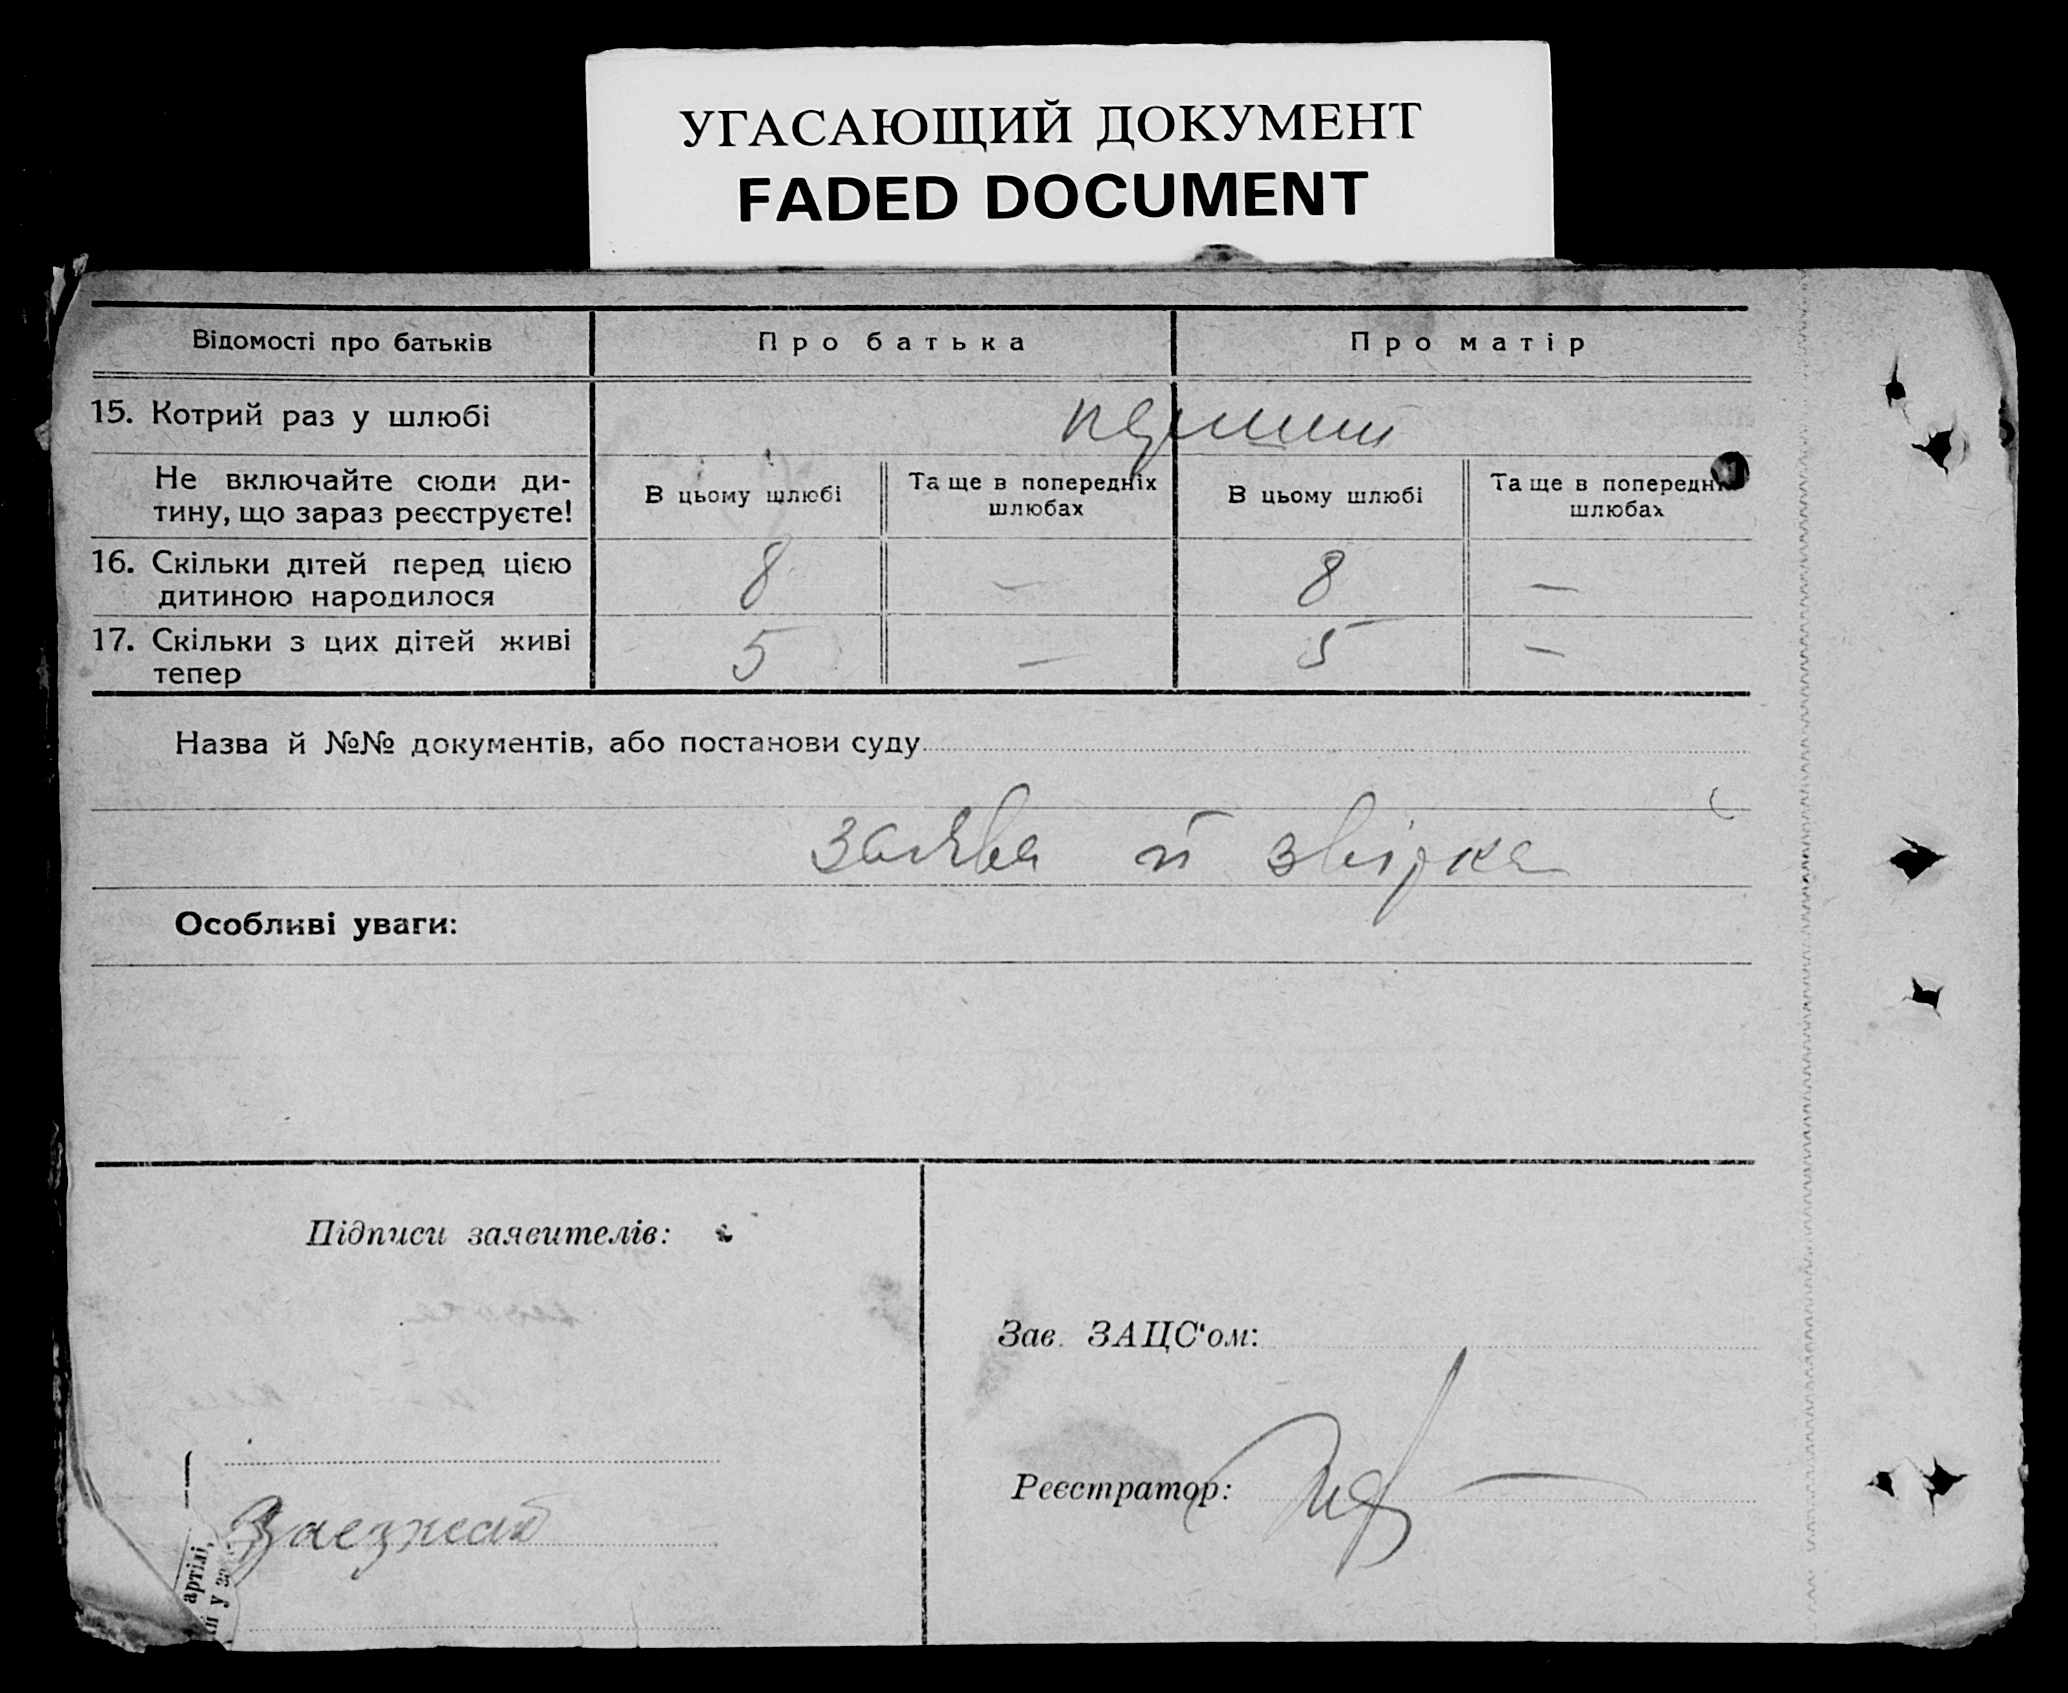 УГАСАЮЩИЙ ДОКУМЕНТ
FADED DOCUMENT
Відомості про батьків
Про батька
Про матір
15. Котрий раз у шлюбі
перший
Не включайте сюди ди-
тину, що зараз реєструєте!
В цьому шлюбі
Та ще в попередніх
шлюбах
В цьому шлюбі
Та ще в попередніх
шлюбах
16. Скільки дітей перед цією
дитиною народилося
8
—
8
—
17. Скільки з цих дітей живі
тепер
5
—
5
—
Назва й №№ документів, або постанови суду
заява й звірка
Особливі уваги:
Підписи заявителів:
Зав. ЗАЦС‘ом:
Реєстратор:
артілі,